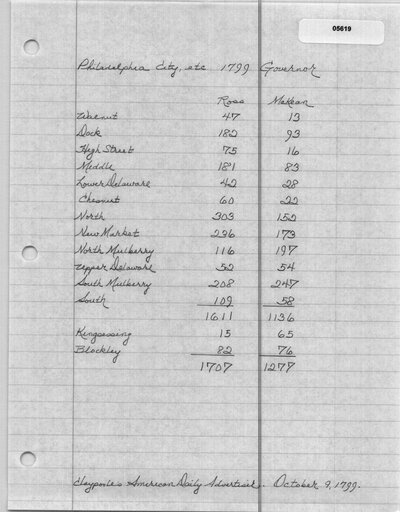 05619
Philadelphia City, etc 1799 Governor
Ross McKean
Walnut 47 13
Dock 182 93
High Street 75 16
Middle 181 83
Lower Delaware 42 28
Chesnut 60 22
North 303 152
New Market 236 173
North Mulberry 116 197
Upper Delaware 52 54
South Mulberry 208 247
South 109 58
1611 1136
Kingsessing 15 65
Blockley 82 76
1707 1277
Claypoole's American Daily Advertiser. October 9, 1799.